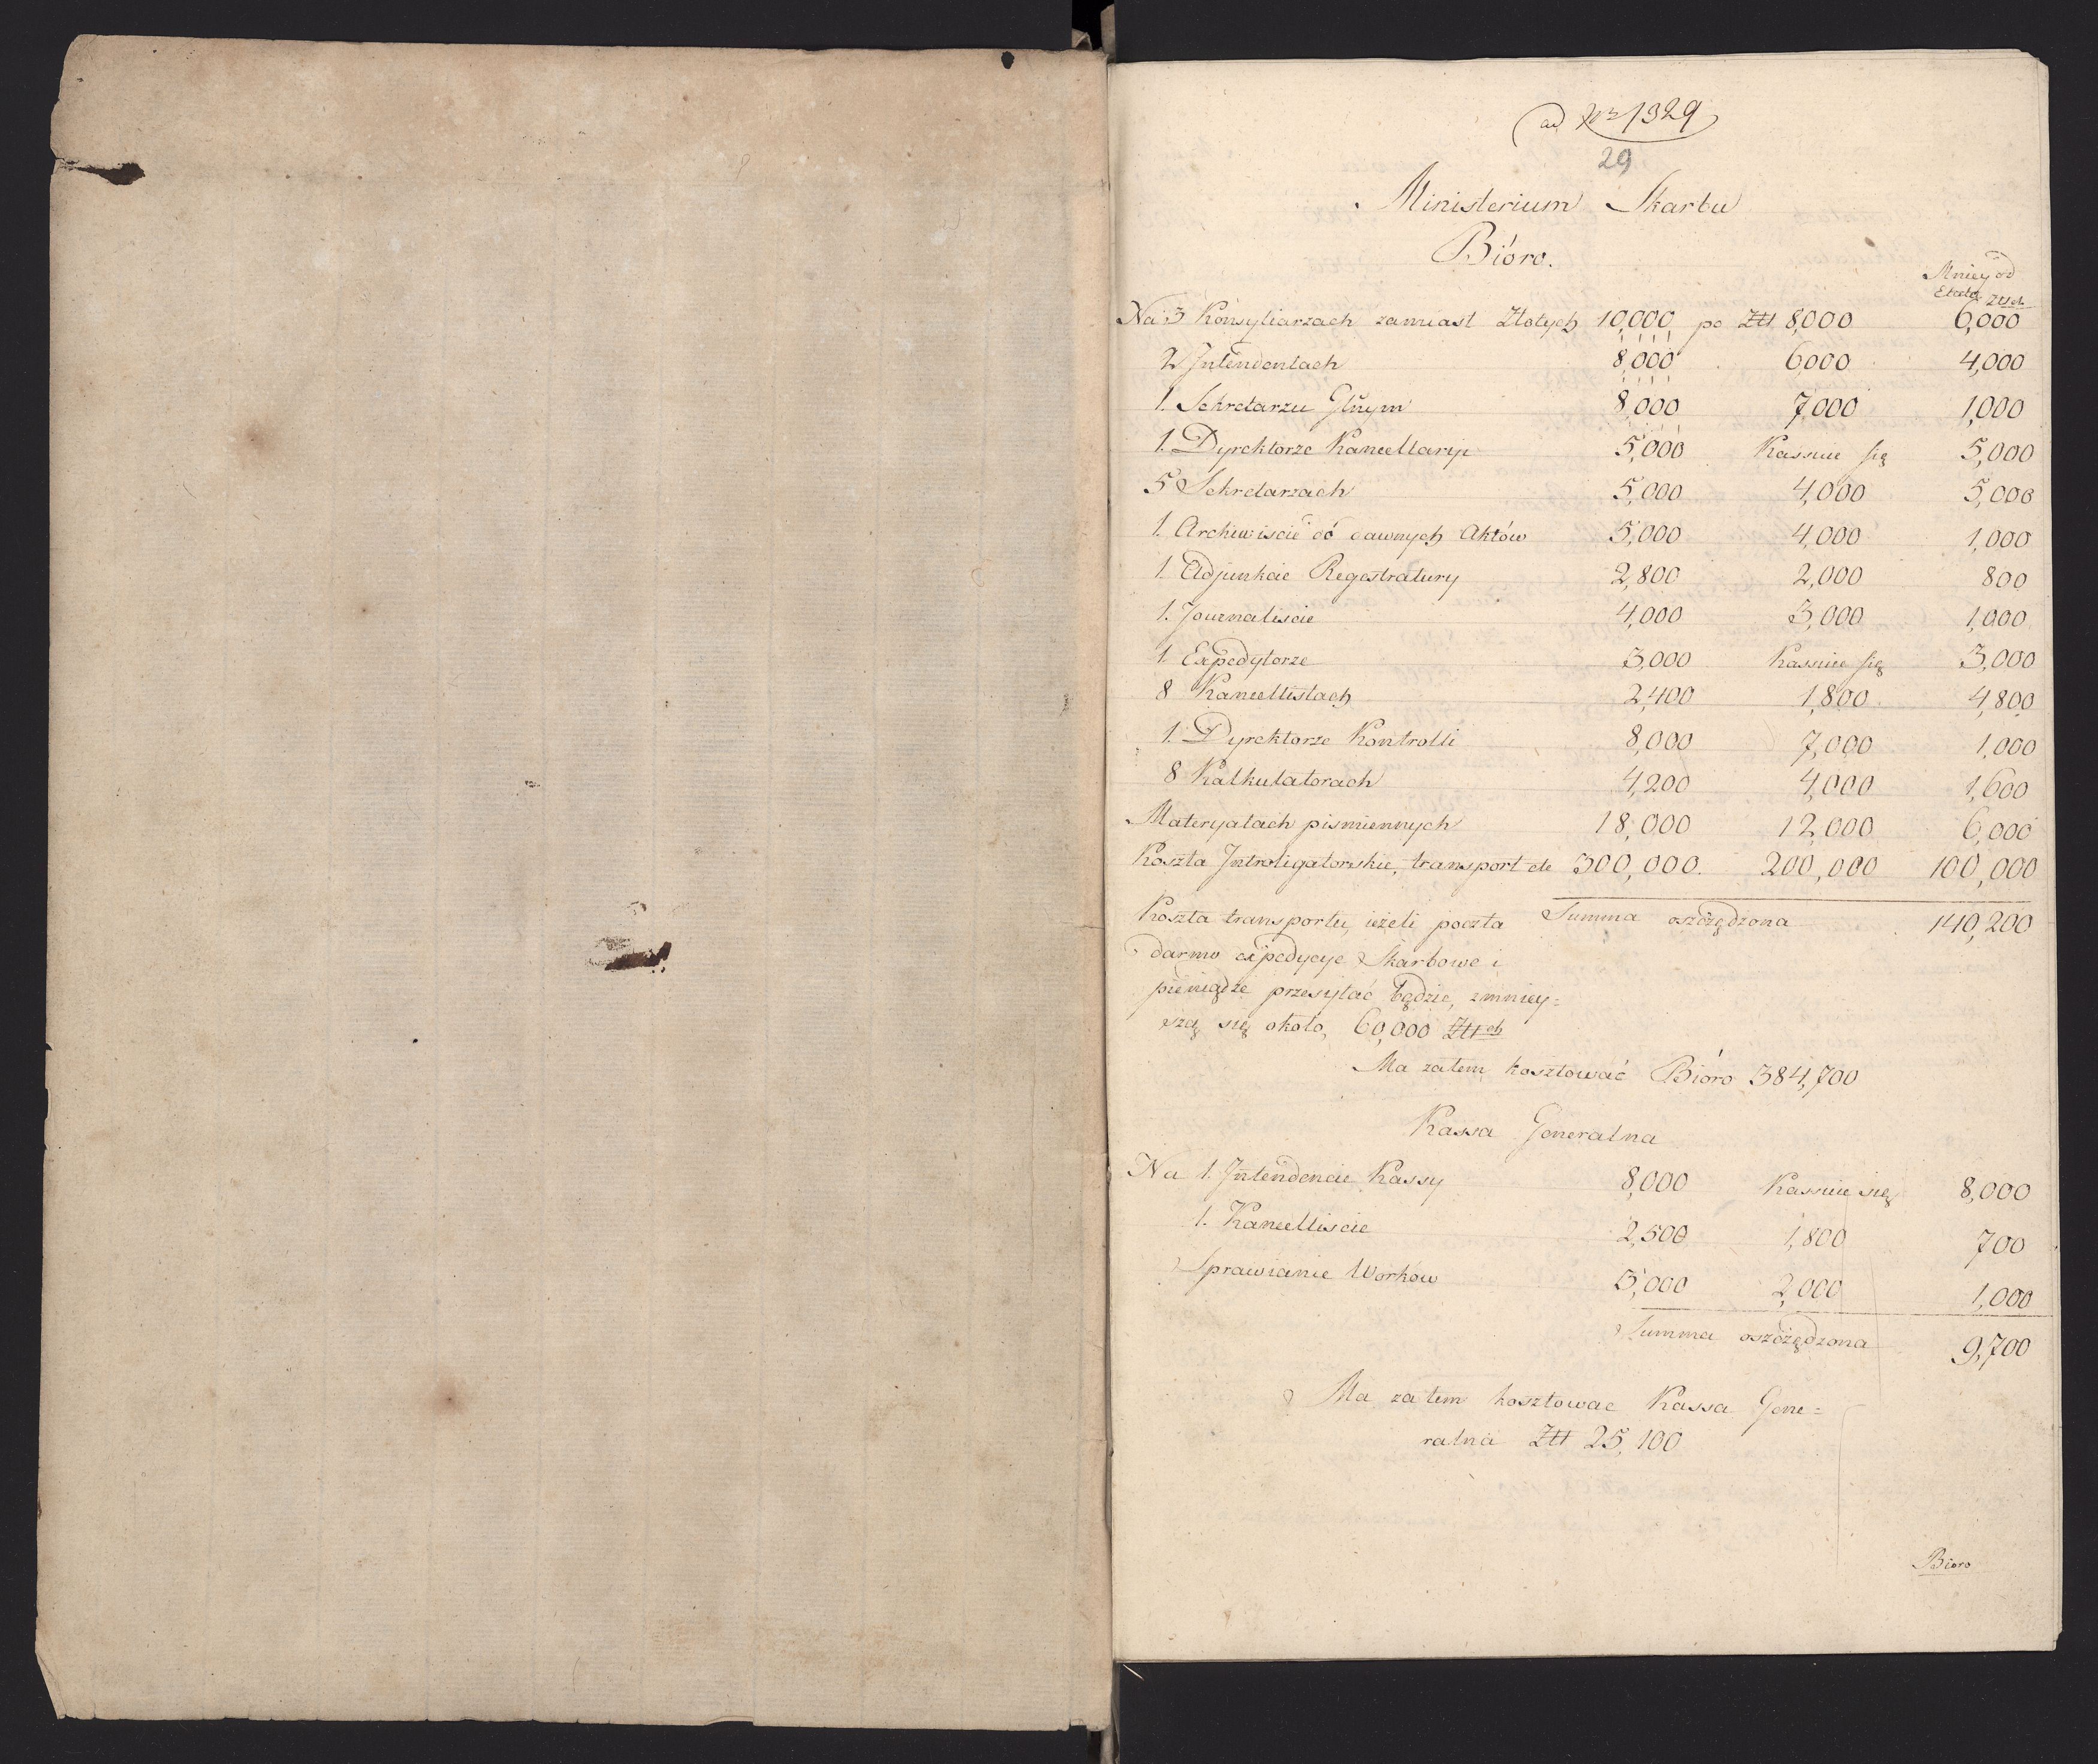 ad Nr 1329
29
Ministerium Skarbu
Bióro.
Mniey od
Etatu Złłch
Na 3 Konsyliarzach zamiast Złotych 10,000 po Złł 8,000 6,000
2 Jntendentach 8,000 6,000 4,000
1. Sekretarzu Głnym 8,000 7,000 1,000
1. Dyrektorze Kancellaryi 5,000 Kassuie się 5,000
5 Sekretarzach 5,000 4,000 5,000
1. Archiwiście od dawnych Aktów 5,000 4,000 1,000
1. Adjunkcie Regestratury 2,800 2,000 800
1. Journaliscie 4,000 3,000 1,000
1. Expedytorze 3,000 Kassuie się 3,000
8 Kancellistach 2,400 1,800 4,800
1. Dyrektorze Kontrolli 8,000 7,000 1,000
8 Kalkulatorach 4,200 4,000 1,600
Materyałach pismiennych 18,000 12,000 6,000
Koszta Jntroligatorskie, transport etc 300,000. 200,000 100,000
Summa oszczędzona 140,200
Koszta transportu, ieżeli poczta
darmo expedycye Skarbowe i
pieniądze przesyłać będzie, zmniey=
szą się około, 60,000 Złłch
Ma zatem kosztować Bióro 384,700
Kassa Generalna
Na 1. Jntendencie Kassy 8,000 Kassuie się 8,000
1. Kancelliscie 2,500 1,800 700
Sprawianie Workow 3,000 2,000 1,000
Summa oszczędzona 9,700
Ma zatem kosztowac Kassa Gene=
ralna Złł 25,100
Bioro